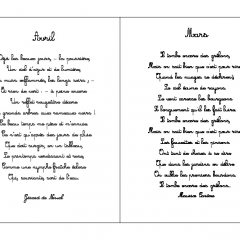 Avril
Déjà les beaux jours, - la poussière,
Un ciel d'azur et de lumière,
murs enflammés, les longs soirs ; -
Et rien de vert : - à peine encore
Un reflet rougeâtre décore
grands arbres aux rameaux noirs !
beau temps me pèse et m'ennuie.
Ce n'est qu'après des jours de pluie
Que doit surgir, en un tableau,
Le printemps verdissant et rose,
Comme une nymphe fraîche éclose
Qui, souriante, sort de l'eau.
Gérard de Nerval
Mars
Il tombe encore des grêlons,
Mais on sait bien que c'est pour rire.
Quand les nuages se déchirent,
Le ciel écume de rayons.
Le vent caresse les bourgeons
Si longuement qu'il les fait luire.
Il tombe encore des grêlons,
Mais on sait bien que c'est pour rire.
Les fauvettes et les pinsons
Ont tant de choses à se dire
Que dans les jardins en délire
On oublie les premiers bourdons.
Il tombe encore des grêlons...
Maurice Carême